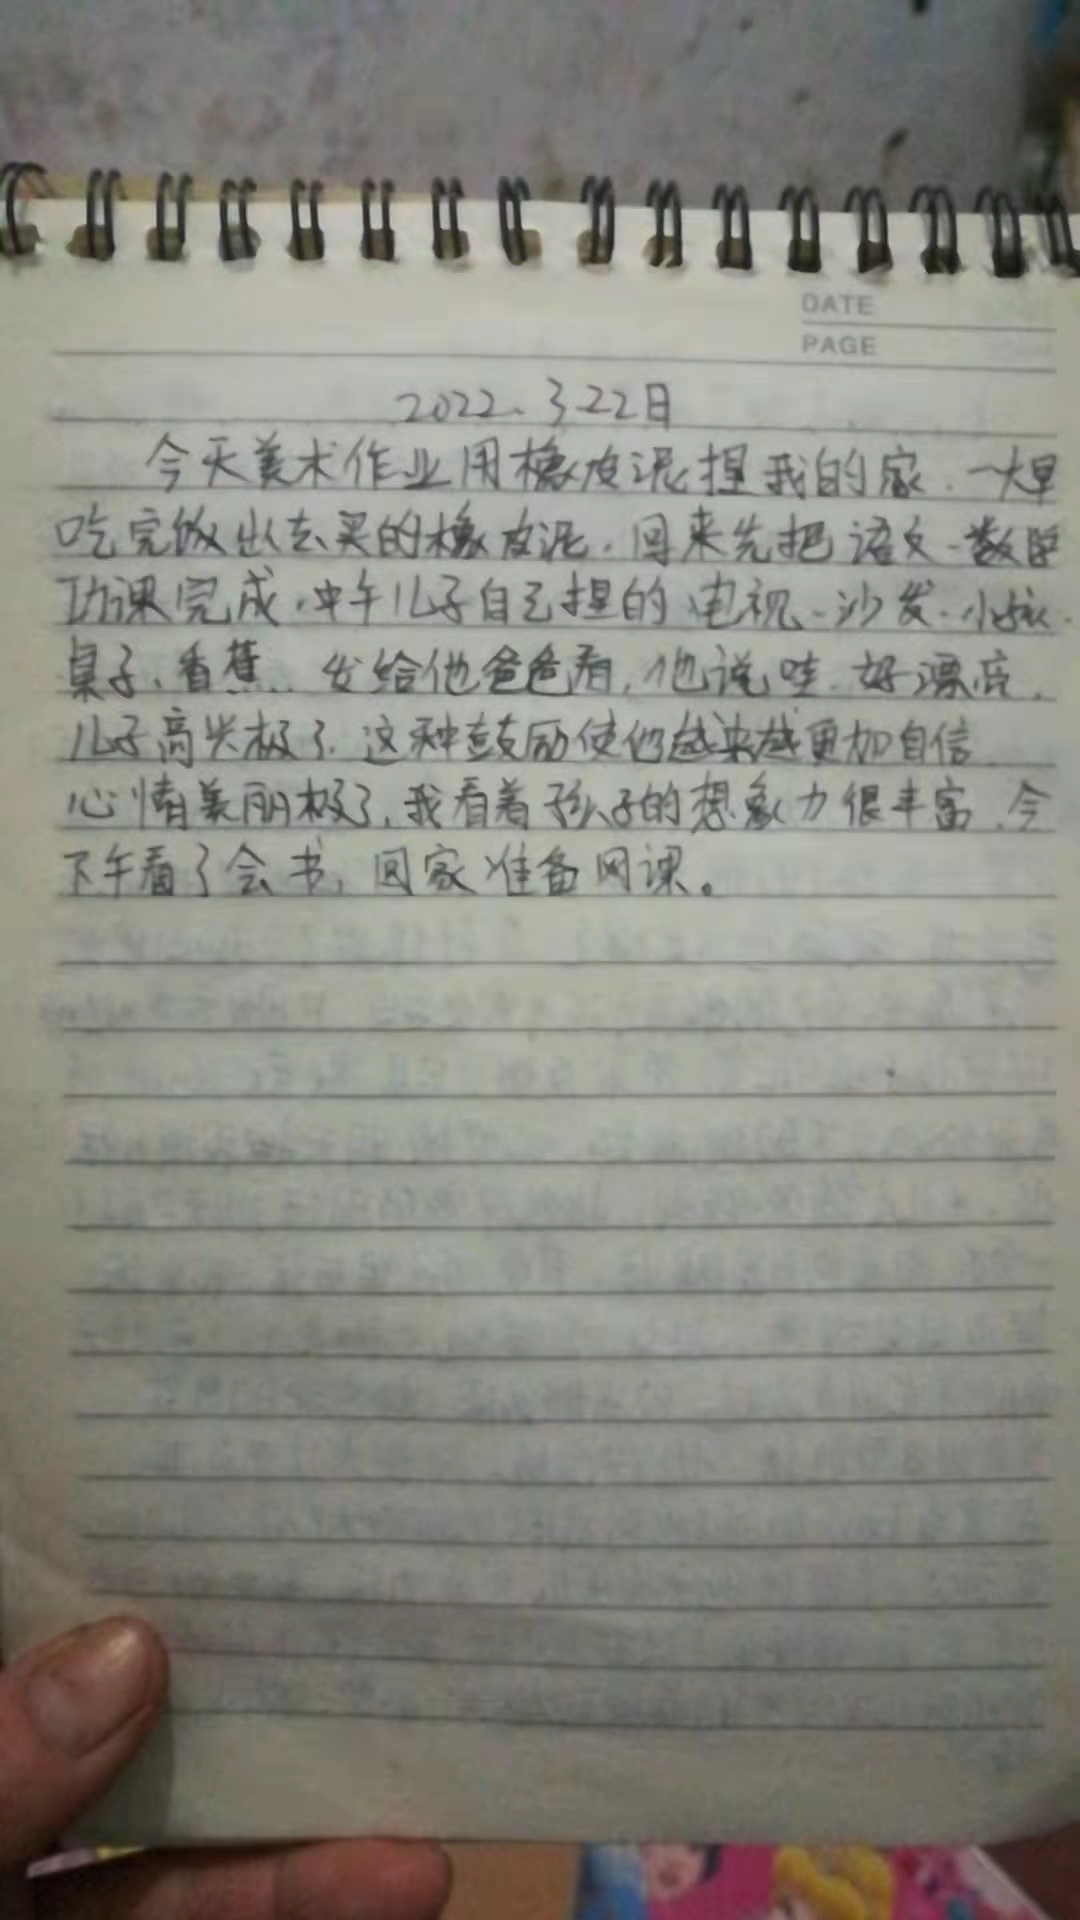 DATE
PAGE
2022.3.22日
今天美术作业用橡皮泥捏我的家.一大早
吃完饭出去买的橡皮泥.回来先把语文、数学
功课完成.中午儿子自己捏的电视、沙发、小孩.
桌子、香蕉.. 发给他爸爸看,他说哇.好漂亮.
儿子高兴极了.这种鼓励使他越来越更加自信
心情美丽极了,我看着孩子的想象力很丰富.今
下午看了会书,回家准备网课。